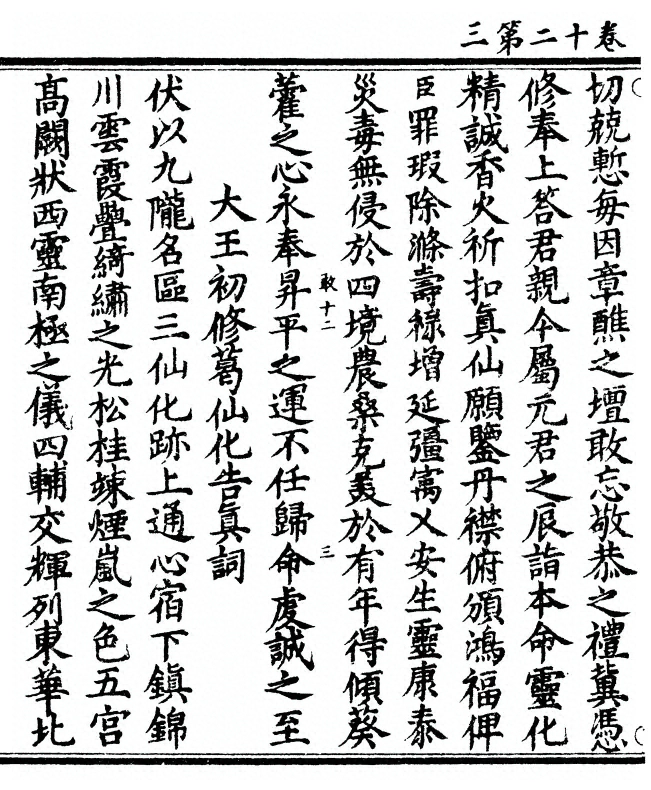 三第二十卷
切兢慙每因章醮之壇敢忘敬恭之禮冀憑
修奉上答君親今屬元君之辰詣本命靈化
精誠香火祈扣眞仙願鑒丹襟俯頒鴻福俾
臣罪瑕除滌壽祿增延疆㝢乂安生靈康泰
災毒無侵於四境農桑克羙於有年得傾葵
藿之心永奉昇平之運不任歸命虔誠之至
敢十二
三
大王初修葛仙化告眞詞
伏以九隴名區三仙化跡上通心宿下鎭錦
川雲霞疊綺繡之光松桂竦煙嵐之色五宮
髙闕狀西靈南極之儀四輔交輝列東華北